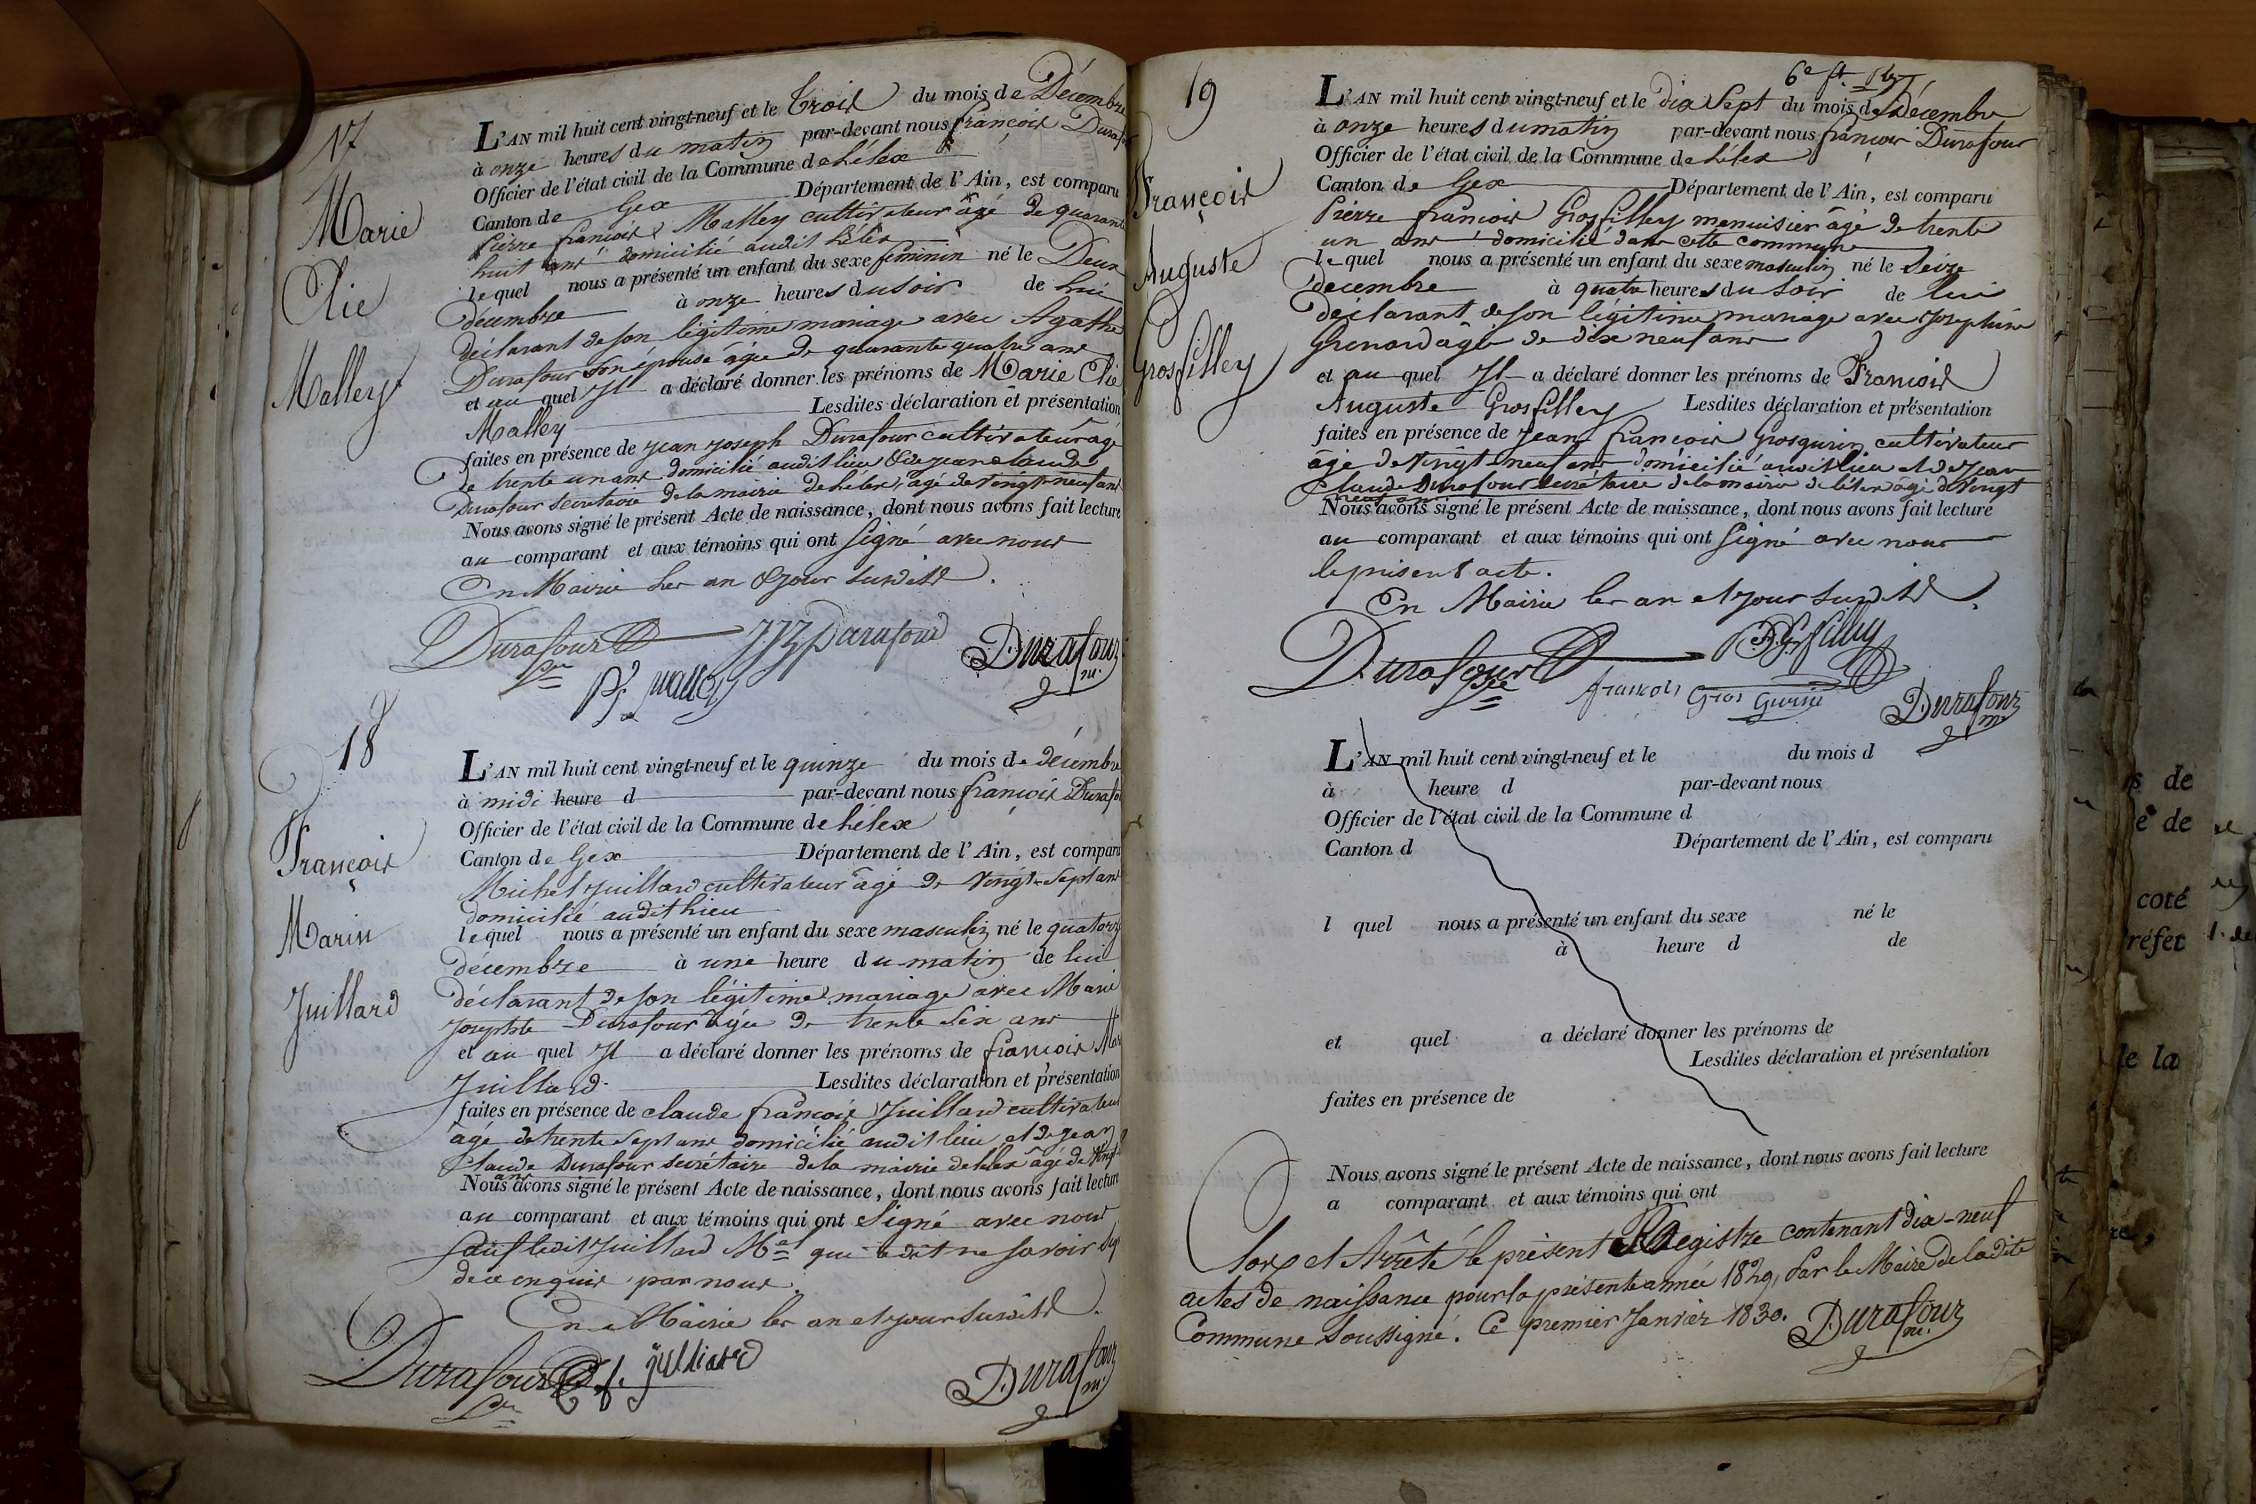 17
Marie
Clie
Malley
L'AN mil huit cent vingt-neuf et le trois du mois de Décembre
à onze heures du matin par-devant nous françois Durafour
Officier de l'état civil de la Commune de Lélex
Canton de Gex Département de l'Ain, est comparu
Pierre françois Malley cultivateur âgé de quarante
huit ans domicilié audit Lélex
lequel nous a présenté un enfant du sexe féminin né le Deux
décembre à onze heures du soir de lui
déclarant de son légitime mariage avec Agathe
Durafour son épouse âgée de quarante quatre ans
et au quel Il a déclaré donner les prénoms de Marie Clie
Malley Lesdites déclaration et présentation
faites en présence de jean joseph Durafour cultivateur âgé
de trente un ans domicilié audit lieu & de jean claude
Durafour secrétaire de la mairie de Lélex, âgé de vingt neuf ans
Nous avons signé le présent Acte de naissance, dont nous avons fait lecture
au comparant et aux témoins qui ont signé avec nous
En Mairie les an & jour susdits.
Durafour
Durafour
18
François
Marin
Juillard
L'AN mil huit cent vingt-neuf et le quinze du mois de décembre
à midi heure d par-devant nous françois Durafour
Officier de l'état civil de la Commune de Lélex
Canton de Gex Département de l'Ain, est comparu
Michel Juillard cultivateur âgé de vingt-sept ans
domicilié audit lieu
lequel nous a présenté un enfant du sexe masculin né le quatorze
décembre à une heure du matin de lui
déclarant de son légitime mariage avec Marie
Josephte Durafour âgée de trente six ans
et au quel Il a déclaré donner les prénoms de françois Mar
Juillard. Lesdites déclaration et présentation
faites en présence de claude françois Juillard cultivateur
âgé de trente sept ans domicilié audit lieu et de jean
Claude Durafour secrétaire de la mairie de Lélex âgé de vingt
ans
Nous avons signé le présent Acte de naissance, dont nous avons fait lecture
au comparant et aux témoins qui ont signé avec nous
sauf ledit Juillard Mel qui a dit ne savoir
de ce enquis par nous.
En Mairie les an et jour susdits.
Durafour
f. jülliard
Durafour
19
François
Auguste
Grosfilley
L'AN mil huit cent vingt-neuf et le dix sept du mois de Décembre
à onze heures du matin par-devant nous françois Durafour
Officier de l'état civil de la Commune de Lélex
Canton de Gex Département de l'Ain, est comparu
Pierre françois Grosfilley menuisier âgé de trente
un ans domicilié dans cette commune
lequel nous a présenté un enfant du sexe masculin né le seize
décembre à quatre heures du soir de lui
déclarant de son légitime mariage avec Josephine
Grenard âgée de dix neuf ans
et au quel Il a déclaré donner les prénoms de François
Auguste Grosfilley Lesdites déclaration et présentation
faites en présence de jean françois Grosgurin cultivateur
âgé de vingt neuf ans domicilié audit lieu et de jean
Claude Durafour secrétaire de la mairie de Lélex âgé de vingt
neuf ans
Nous avons signé le présent Acte de naissance, dont nous avons fait lecture
au comparant et aux témoins qui ont signé avec nous
le présent acte.
En Mairie les an et jour susdits.
Durafour
françois Gros Gurin
Durafour
L'AN mil huit cent vingt-neuf et le du mois d
à heure d par-devant nous
Officier de l'état civil de la Commune d
Canton d Département de l'Ain, est comparu
l quel nous a présenté un enfant du sexe né le
à heure d de
et quel a déclaré donner les prénoms de
Lesdites déclaration et présentation
faites en présence de
Nous avons signé le présent Acte de naissance, dont nous avons fait lecture
a comparant et aux témoins qui ont
Clos et Arrêté le présent Registre contenant dix-neuf
actes de naissance pour la présente année 1829, Par le Maire de ladite
Commune soussigné. Ce premier Janvier 1830. Durafour
de
e de
coté
réfet
le la